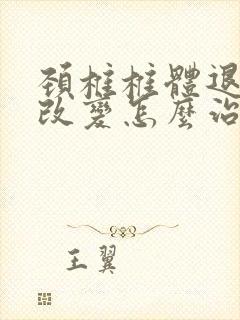 頚椎椎體退
改變怎麼治
王翼